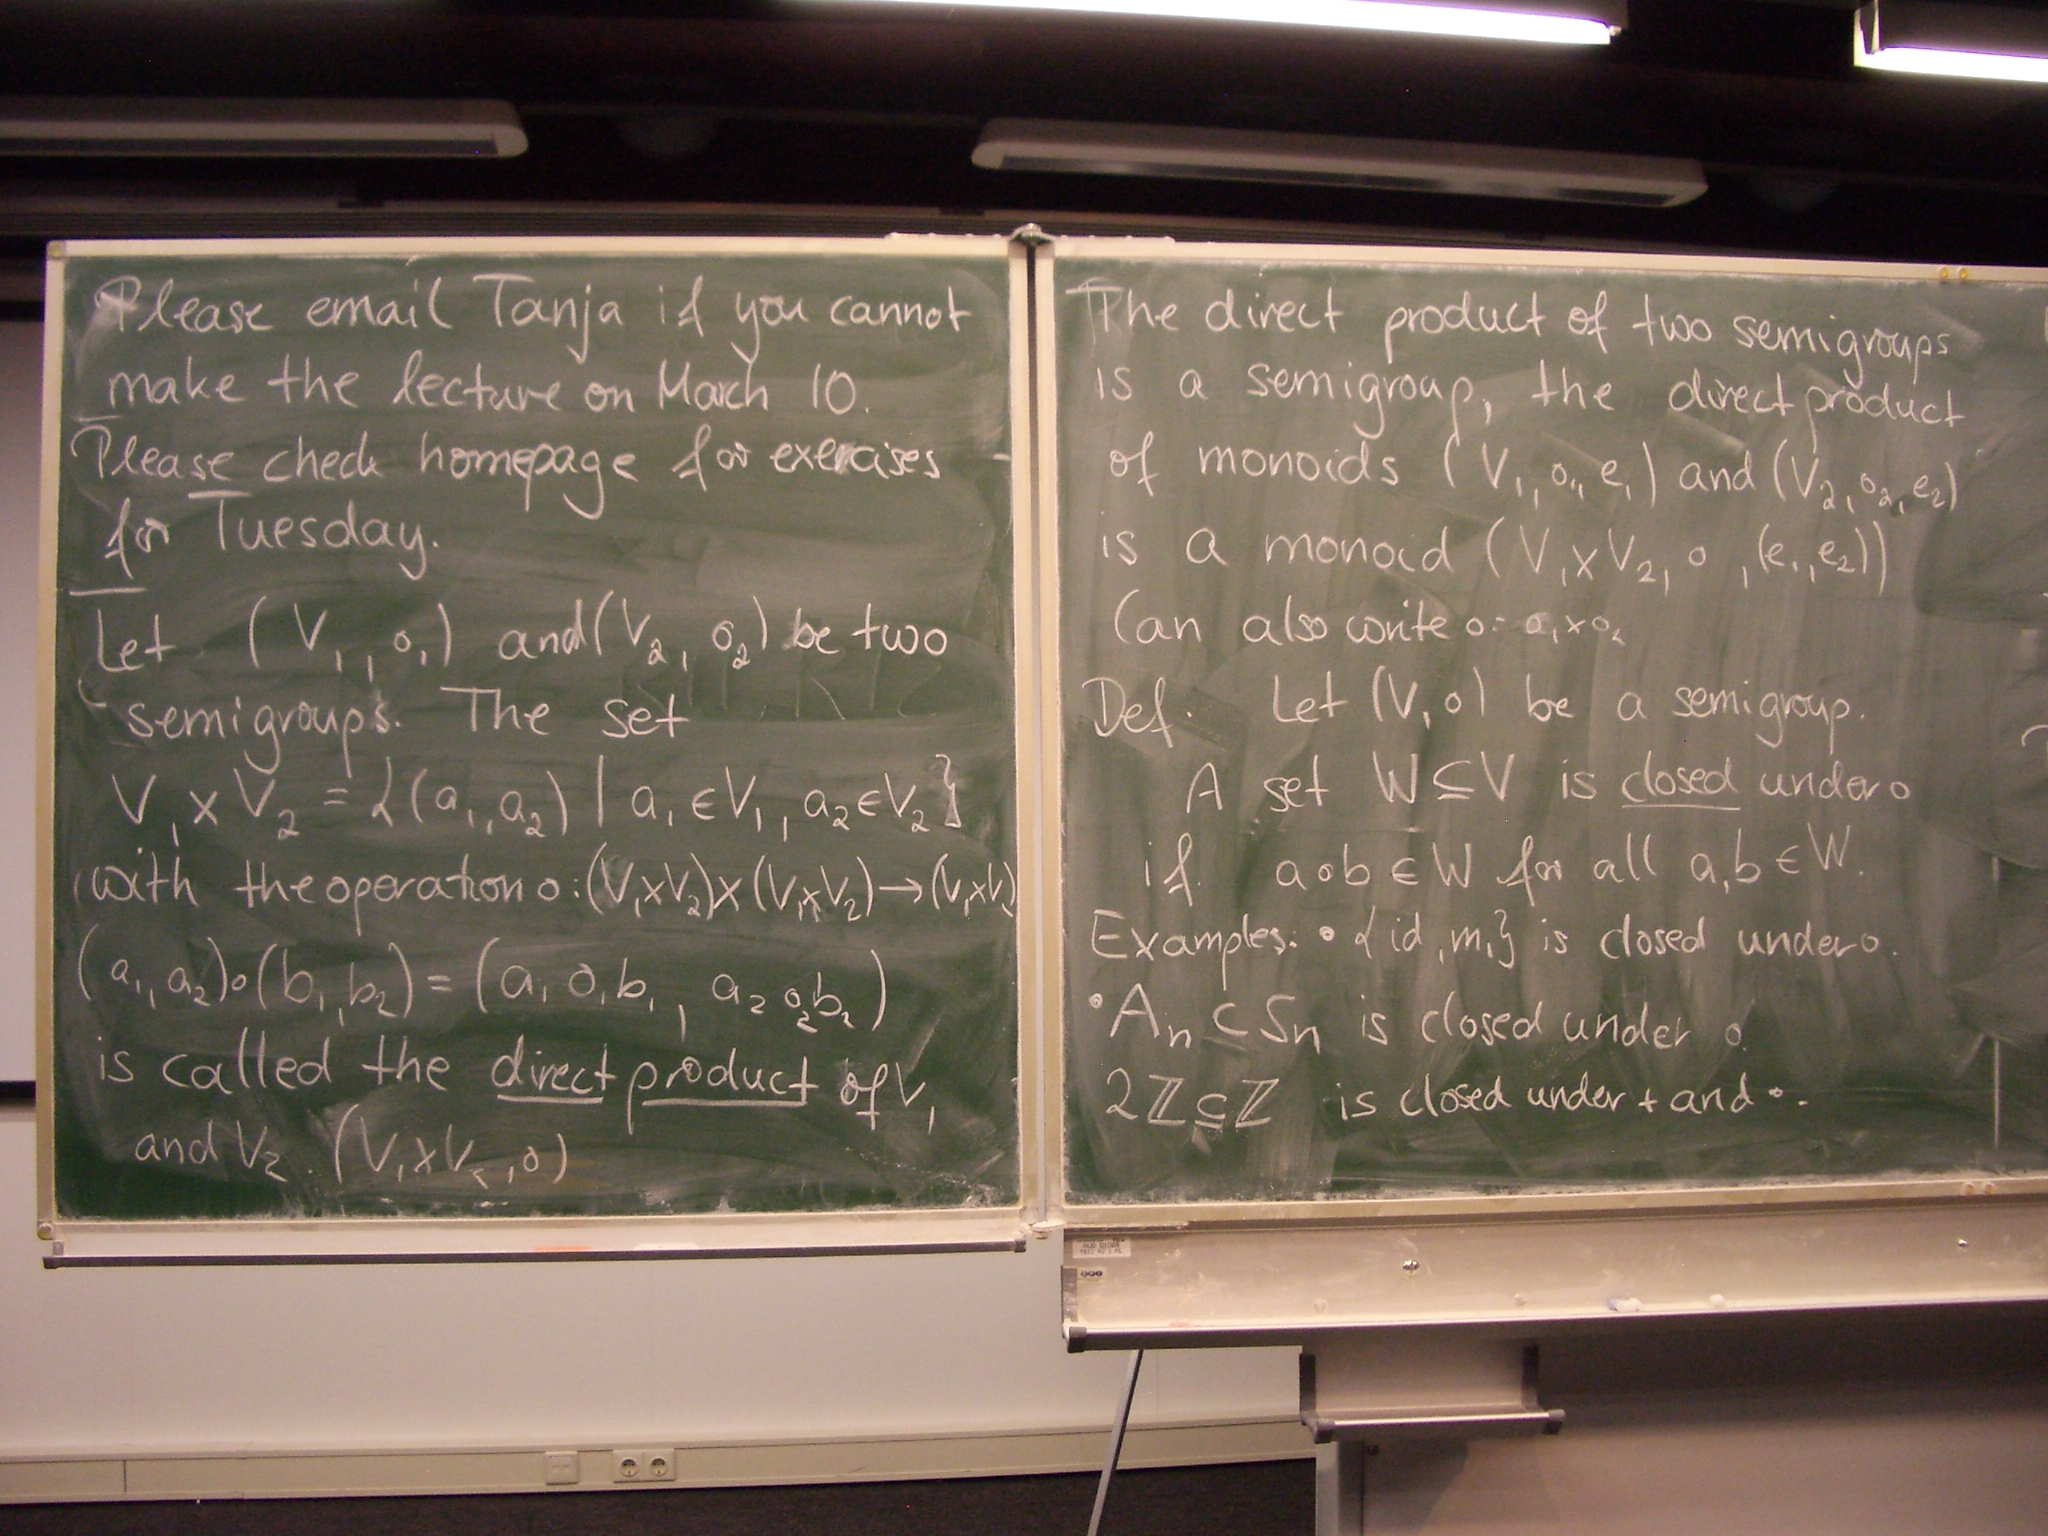 Please email Tanja if you cannot
make the lecture on March 10.
Please check homepage for exercises
for Tuesday.
Let (V₁, o₁) and (V₂, o₂) be two
semigroups. The set
V₁ x V₂ = {(a₁, a₂) | a₁ ∈ V₁, a₂ ∈ V₂}
with the operation o: (V₁xV₂)x(V₁xV₂) → (V₁xV₂)
(a₁, a₂)o(b₁, b₂) = (a₁ o₁ b₁, a₂ o₂ b₂)
is called the direct product of V₁
and V₂. (V₁xV₂, o)
The direct product of two semigroups
is a semigroup, the direct product
of monoids (V₁, o₁, e₁) and (V₂, o₂, e₂)
is a monoid (V₁xV₂, o, (e₁, e₂))
Can also write o = o₁ x o₂
Def. Let (V, o) be a semigroup.
A set W ⊆ V is closed under o
if a o b ∈ W for all a, b ∈ W.
Examples: • {id, m₁} is closed under o.
• Aₙ ⊂ Sₙ is closed under o.
2ℤ ⊆ ℤ is closed under + and •.